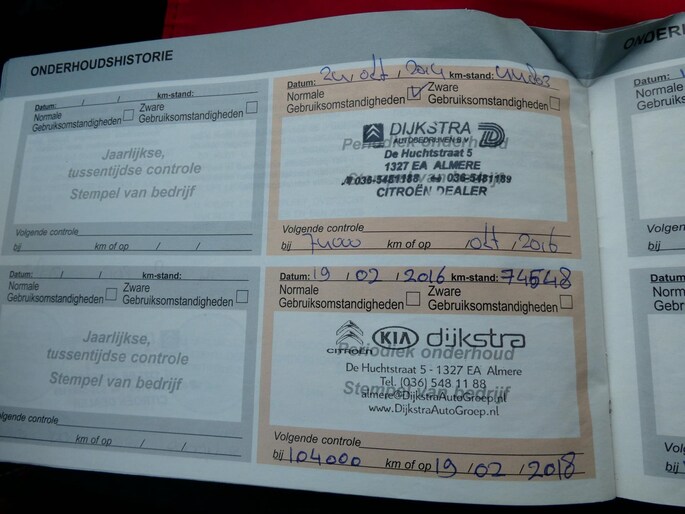 ONDERHOUDSHISTORIE
Datum: / / km-stand:
Normale Gebruiksomstandigheden
Zware Gebruiksomstandigheden
Jaarlijkse,
tussentijdse controle
Stempel van bedrijf
Volgende controle
bij km of op / /
Datum: 24 / okt / 2014 km-stand:
Normale Gebruiksomstandigheden
Zware Gebruiksomstandigheden
DIJKSTRA
AUTOBEDRIJVEN B.V.
Periodiek onderhoud
De Huchtstraat 5
1327 EA ALMERE
Stempel van bedrijf
036-5481188 036-5481189
CITROËN DEALER
Volgende controle
bij 74000 km of op / okt / 2016
Datum: / / km-stand:
Normale Gebruiksomstandigheden
Zware Gebruiksomstandigheden
Jaarlijkse,
tussentijdse controle
Stempel van bedrijf
Volgende controle
km of op / /
Datum: 19 / 02 / 2016 km-stand: 74548
Normale Gebruiksomstandigheden
Zware Gebruiksomstandigheden
CITROËN KIA dijkstra
Periodiek onderhoud
De Huchtstraat 5 - 1327 EA Almere
Tel. (036) 548 11 88
Stempel van bedrijf
almere@DijkstraAutoGroep.nl
www.DijkstraAutoGroep.nl
Volgende controle
bij 104000 km of op 19 / 02 / 2018